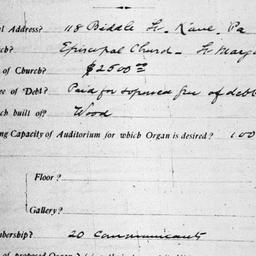 l Address? 118 Biddle St. Kane, Pa
ch? Episcopal Church - St Marga
of Church? $2500.00
ee of Debt? Paid for supposed free of debt
ch built of? Wood
ng Capacity of Auditorium for which Organ is desired? 100
Floor?
Gallery?
mbership? 20 Communicants